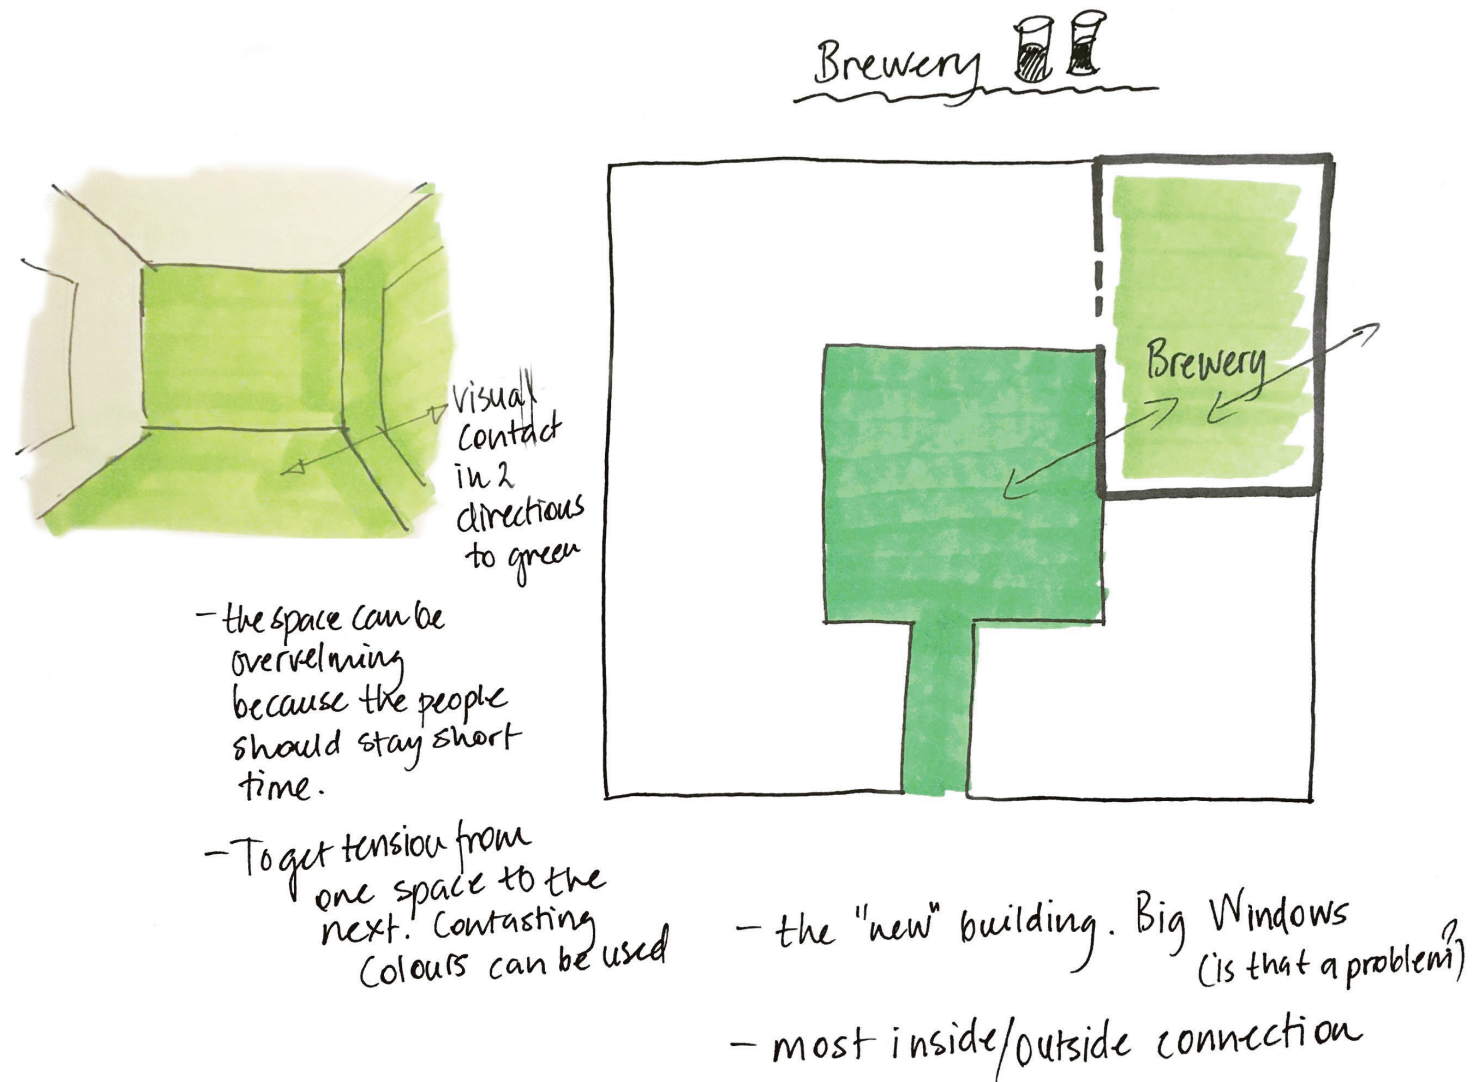 Brewery
Brewery
visual
contact
in 2
directions
to green
- the space can be
overvelming
because the people
should stay short
time.
- To get tension from
one space to the
next. Contasting
colours can be used
- the "new" building. Big Windows
(is that a problem?)
- most inside/outside connection